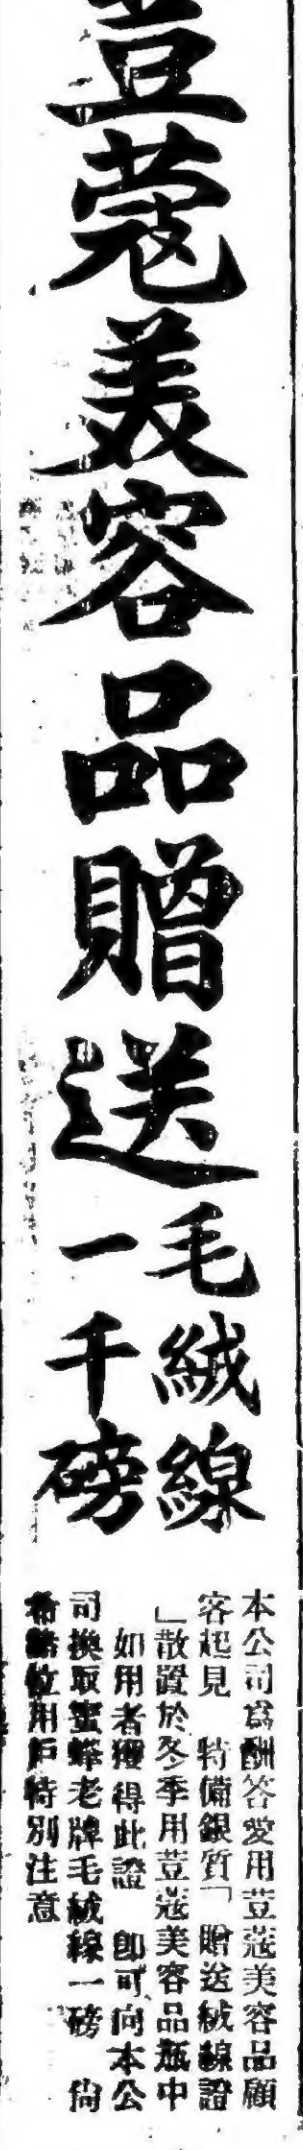 荳蔻美容品贈送
毛絨線
一千磅
本公司爲酬答愛用荳蔻美容品顧
客起見　特備銀質「贈送絨線證
」散置於冬季用荳蔻美容品瓶中
　如用者獲得此證　卽可向本公
司換取蜜蜂老牌毛絨線一磅　尙
希諸位用戶特別注意